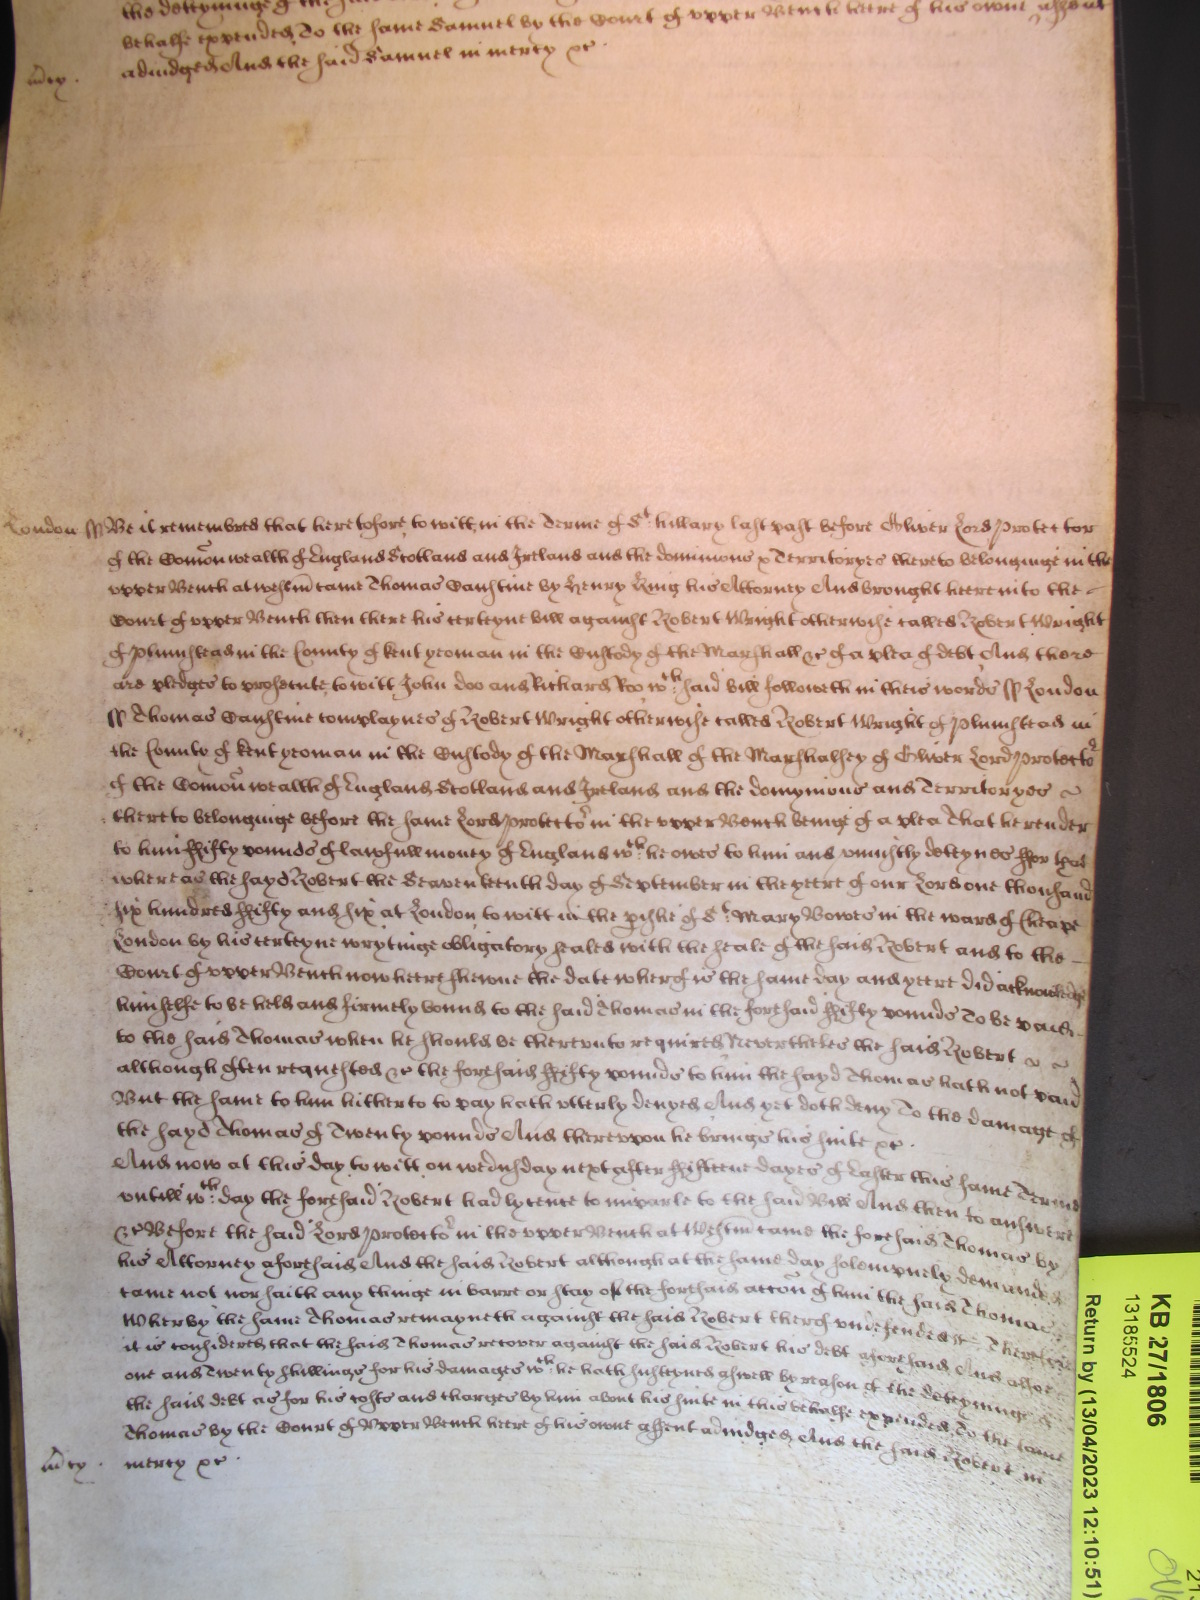 the deteyninge of the said
behalfe expended To the same Samuel by the Court of upper Bench heere of his owne assent
adiudged And the said Samuel in mercy &c .
m̃cy .
London ss Be it remembred that heretofore to witt in the Terme of St. hillary last past before Oliver Lord Protector
of the Com̃onwealth of England Scotland and Ireland and the dominions & Territoryes thereto belonginge in the
upper Bench at westm̃ came Thomas by Henry King his Attorney And brought heere into the
Court of upper Bench then there his certeyne bill against Robert Wright otherwise called Robert Wright
of Plumstead in the County of kent yeoman in the Custody of the Marshall &c of a plea of debt And there
are pledges to prosecute to witt John doo and Richard Roo wch. said bill followeth in theis words ss London
ss Thomas complaynes of Robert Wright otherwise called Robert Wright of Plumstead in
the County of kent yeoman in the Custody of the Marshall of the Marshalsey of Oliver Lord Protector
of the Com̃on wealth of England Scotland and Ireland and the domynions and Territoryes
thereto belonginge before the same Lord Protector in the upper Bench beinge of a plea That he render
to him ffifty pounds of lawfull money of England wch. he owes to him and uniustly deteynes ffor that
whereas the sayd Robert the Seaventeenth day of September in the yeere of our Lord one thousand
six hundred ffifty and six at London to witt in the pishe of St. Mary Bowes in the ward of Cheape
London by his certeyne wrytinge obligatory sealed with the seale of the said Robert and to the
Court of upper Bench now heere shewne the date wherof is the same day and yeere did acknowledge
himselfe to be held and firmely bound to the said Thomas in the foresaid ffifty pounds To be paid
to the said Thomas when he should be thereunto required Nevertheles the said Robert
although often requested &c the foresaid ffifty pounds to him the sayd Thomas hath not paid
But the same to him hitherto to pay hath utterly denyed And yet doth deny To the damage of
the sayd Thomas of Twenty pounds And thereupon he brings his suite &c .
And now at this day to witt on wednsday next after ffifteene dayes of Easter this same Terme
untill wch. day the foresaid Robert had lycence to imparle to the said Bill And then to answere
&c Before the said Lord Protector in the upper Bench at Westm̃ came the foresaid Thomas by
his Attorney aforesaid And the said Robert although at the same day solempnely demanded
came not nor saith any thinge in barre or stay of the foresaid acc̃on of him the said Thomas
Wherby the same Thomas remayneth against the said Robert therof undefended &c Therefore
it is considered that the said Thomas recover against the said Robert his debt aforesaid And alsoe
one and Twenty shillings for his damages wch. he hath susteyned aswell by reason of the deteyninge of
the said debt as for his costs and charges by him about his suite in this behalfe expended To the same
Thomas by the Court of Upper Bench heere of his owne assent adiudged And the said Robert in
m̃cy . mercy &c .
KB 27/1806
13185524
Return by (13/04/2023 12:10:51)